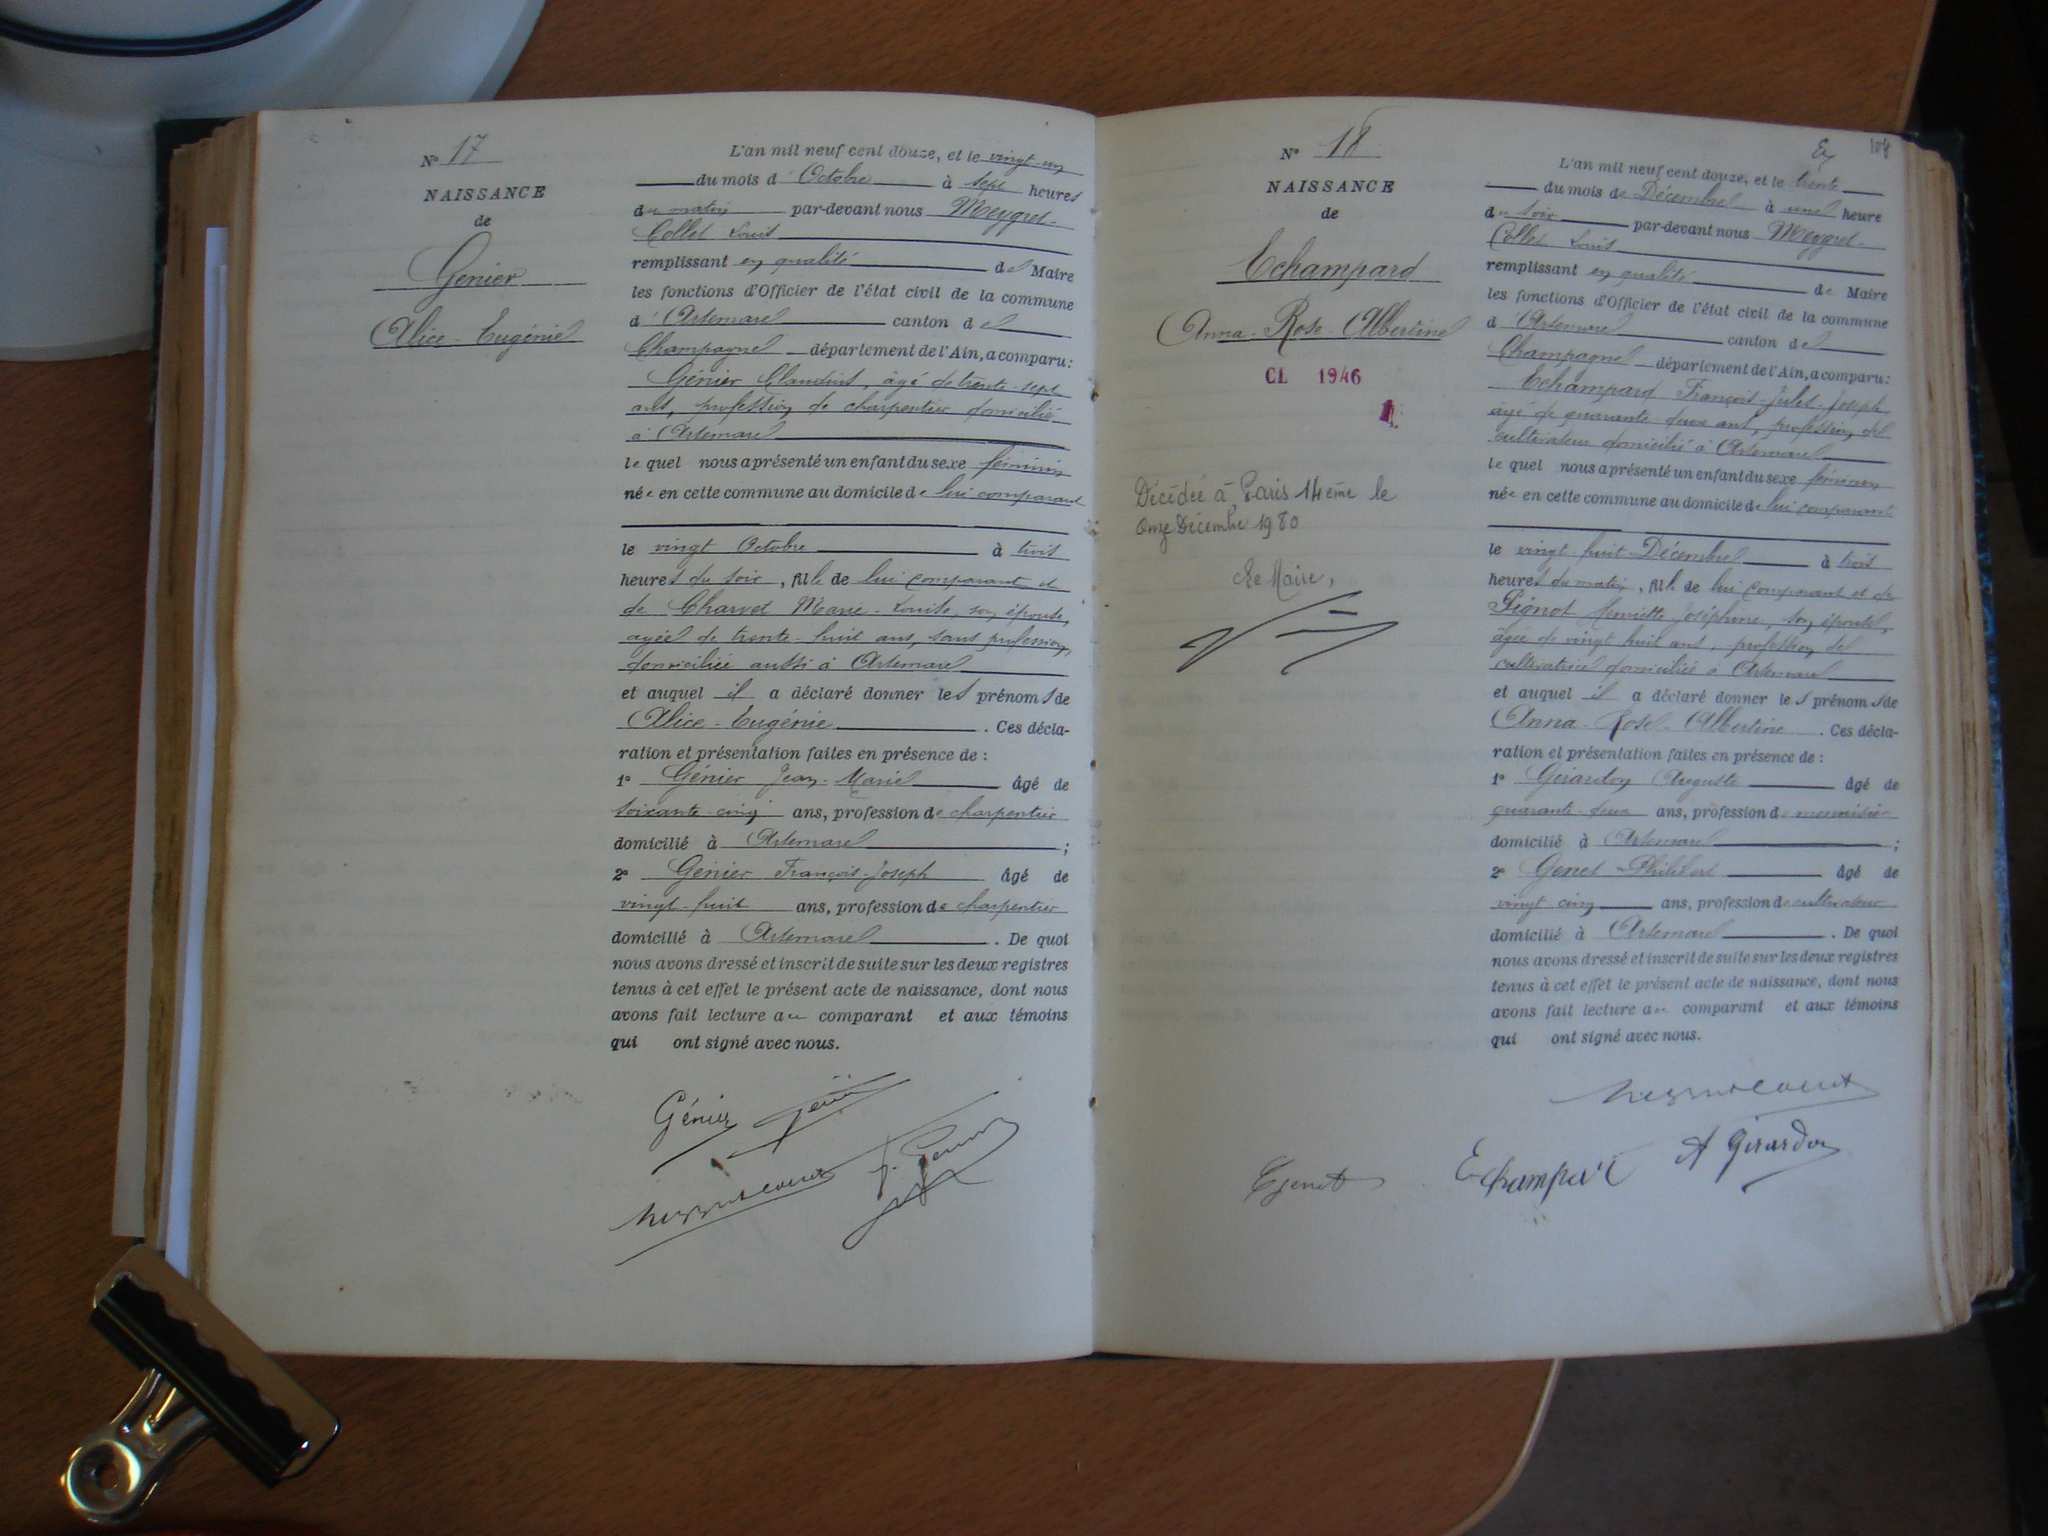 N° 17
NAISSANCE
de
Génier
Alice-Eugénie
L'an mil neuf cent douze, et le vingt-un
du mois d'Octobre à sept heures
du matin par-devant nous Meygret-
Collet Louis
remplissant en qualité de Maire
les fonctions d'Officier de l'état civil de la commune
d'Artemare canton de
Champagne département de l'Ain, a comparu:
Génier Claudius, âgé de trente-sept
ans, profession de charpentier domicilié
à Artemare
lequel nous a présenté un enfant du sexe féminin
née en cette commune au domicile de lui comparant
le vingt Octobre à trois
heures du soir, fille de lui comparant et
de Charvet Marie-Louise, son épouse,
agée de trente-huit ans, sans profession,
domiciliée aussi à Artemare
et auquel il a déclaré donner les prénoms de
Alice-Eugénie. Ces décla-
ration et présentation faites en présence de :
1° Génier Jean-Marie âgé de
soixante-cinq ans, profession de charpentier
domicilié à Artemare ;
2° Génier François-Joseph âgé de
vingt-huit ans, profession de charpentier
domicilié à Artemare. De quoi
nous avons dressé et inscrit de suite sur les deux registres
tenus à cet effet le présent acte de naissance, dont nous
avons fait lecture au comparant et aux témoins
qui ont signé avec nous.
Génier Génier
N° 18
NAISSANCE
de
Echampard
Anna-Rose-Albertine
CL 1946
Décédée à Paris 14ème le
onze Décembre 1980
Le Maire,
108
L'an mil neuf cent douze, et le trente
du mois de Décembre à une heure
du soir par-devant nous Meygret-
Collet Louis
remplissant en qualité de Maire
les fonctions d'Officier de l'état civil de la commune
d'Artemare canton de
Champagne département de l'Ain, a comparu:
Echampard François-Jules-Joseph
âgé de quarante-deux ans, profession de
cultivateur domicilié à Artemare
lequel nous a présenté un enfant du sexe féminin
née en cette commune au domicile de lui comparant
le vingt-huit Décembre à trois
heures du matin, fille de lui comparant et de
Pignot Henriette Joséphine, son épouse,
âgée de vingt huit ans, profession de
cultivatrice domiciliée à Artemare
et auquel il a déclaré donner les prénoms de
Anna-Rose-Albertine. Ces décla-
ration et présentation faites en présence de :
1° Girardoy Auguste âgé de
quarante-deux ans, profession de menuisier
domicilié à Artemare ;
2° Genet Philibert âgé de
vingt cinq ans, profession de cultivateur
domicilié à Artemare. De quoi
nous avons dressé et inscrit de suite sur les deux registres
tenus à cet effet le présent acte de naissance, dont nous
avons fait lecture au comparant et aux témoins
qui ont signé avec nous.
Genet Echampard A Girardoy